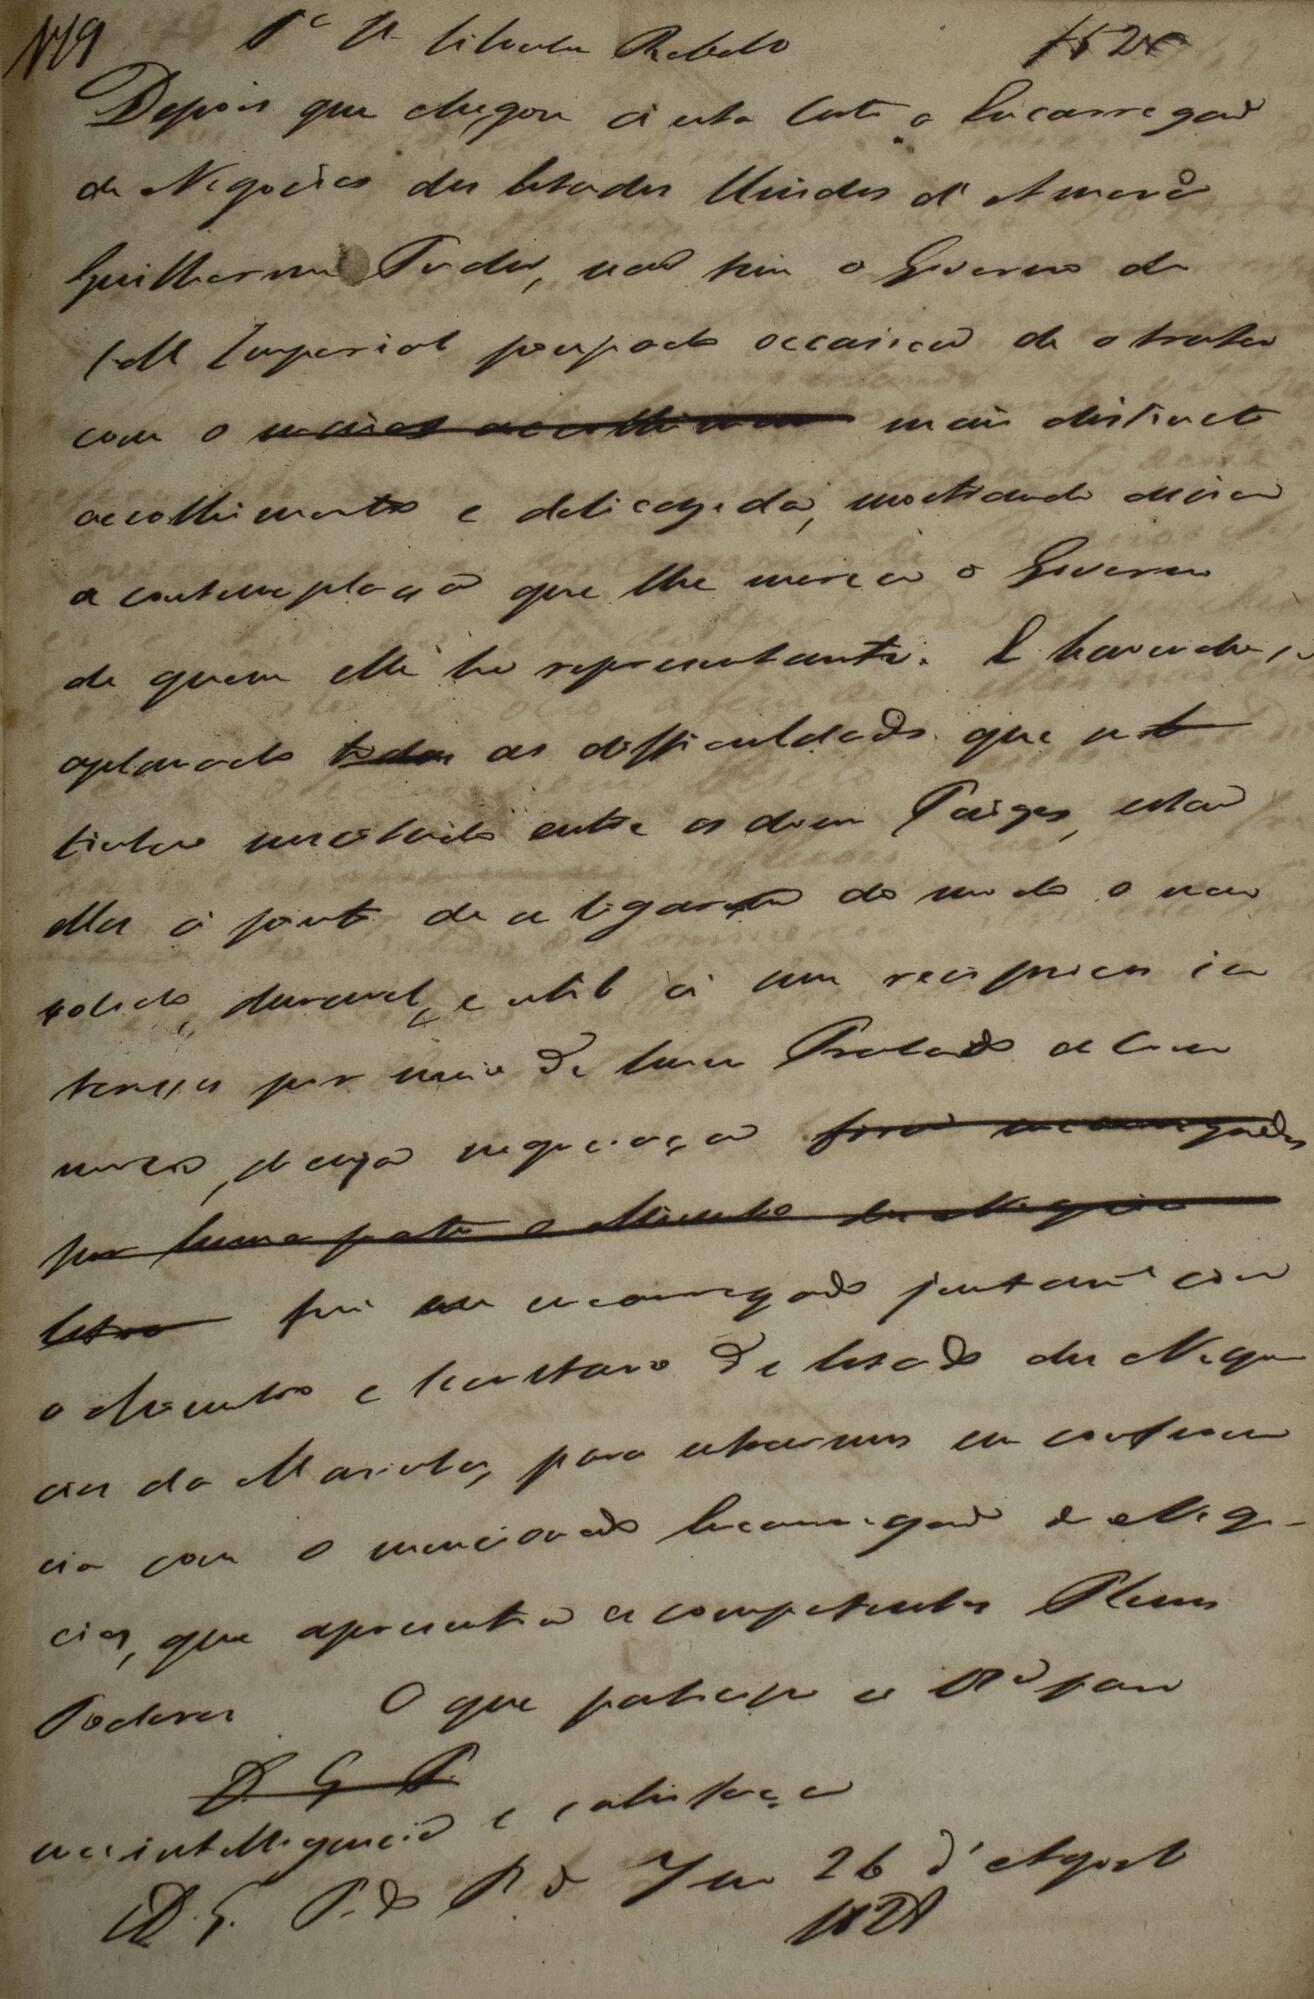 N 19 Pª Silvestre Rebello 1828
Depois que chegou á esta Corte o Encarregado
de Negocios dos Estados Unidos d'Amerca
Guilherme Tudor, não tem o Governo de
S. M. Imperial poupado occasião de o tratar
com o maior acolhimento mais distincto
acolhimento e delicadeza, mostrando assim
a contemplação que lhe merece o Governo
de quem elle he representante. E havendo-se
aplanado todas as difficuldades que se t
tinhão suscitado entre os dous Paizes, estão
elles á ponto de se ligarem do modo o mais
solido, duravel, e util á seus reciprocos in
teresses por meio de hum Tratado de Com
mercio, de cuja negociação forão encarregados
por huma parte o Ministro dos Negocios
Estran fui eu encarregado juntame com
o Ministro e Secretario de Estado dos Nego
cios da Marinha, para entrarmos em conferen
cia com o mencionado Encarregado de Nego-
cios, que apresentou os competentes Plenos
Poderes O que participo a VSª para
D. G. P.
sua intelligencia e satisfação
D. G. P. do R de Jan 26 d'Agosto
1828